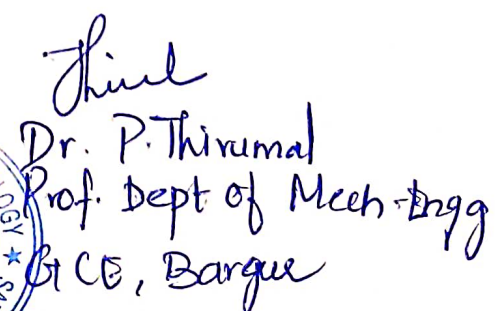 Thirul
Dr. P. Thirumal
Prof. Dept of Mech-Engg
GCE, Bargur
OLOGY ★ SA